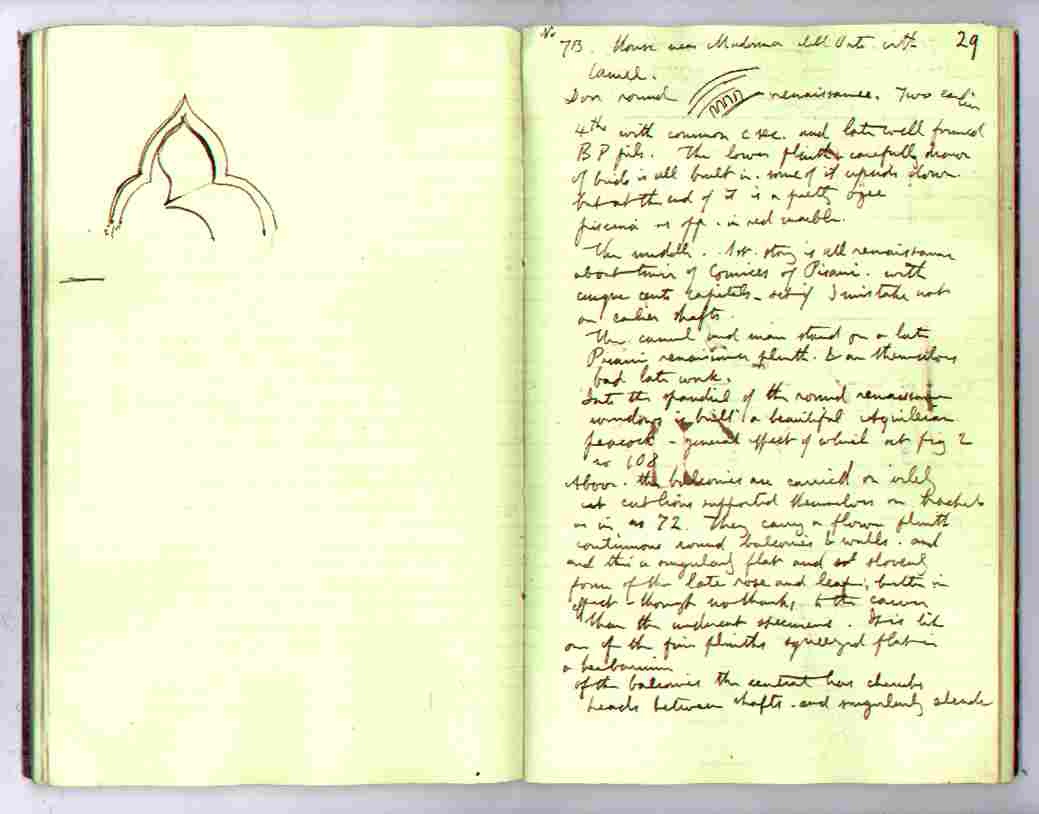 No 29
73. House near Madonna dell Orto. with
Camel.
Door round renaissance. Two earlier
4ths with common c sec. and late well formed
B P pils. The lower plinth carefully drawn
of birds is all built in. some of it upside down.
but at the end of it is a pretty ogee
piscina as opp. in red marble.
The middle. 1st. story is all renaissance
about time of Cornices of Pisani. with
cinque cento capitals - set if I mistake not
on earlier shafts.
The camel and man stand on a late
Pisani renaissance plinth. & are themselves
bad late work.
Into the spandril of the round renaissance
windows is built a beautiful Aquileian
peacock - general effect of which at fig 2
no 108
Above. the balconies are carried on
cut lions supported themselves on brackets
as in no 72. They carry a flower plinth
continuous round balconies & walls. and
and this a singularly flat and slovenly
form of the late rose and leaf; better in
effect - though no thanks to the carver
than the undercut specimens. It is like
one of the fine plinths squeezed flat in
a herbarium
of the balconies the central has cherubs
heads between shafts. and singularly slender